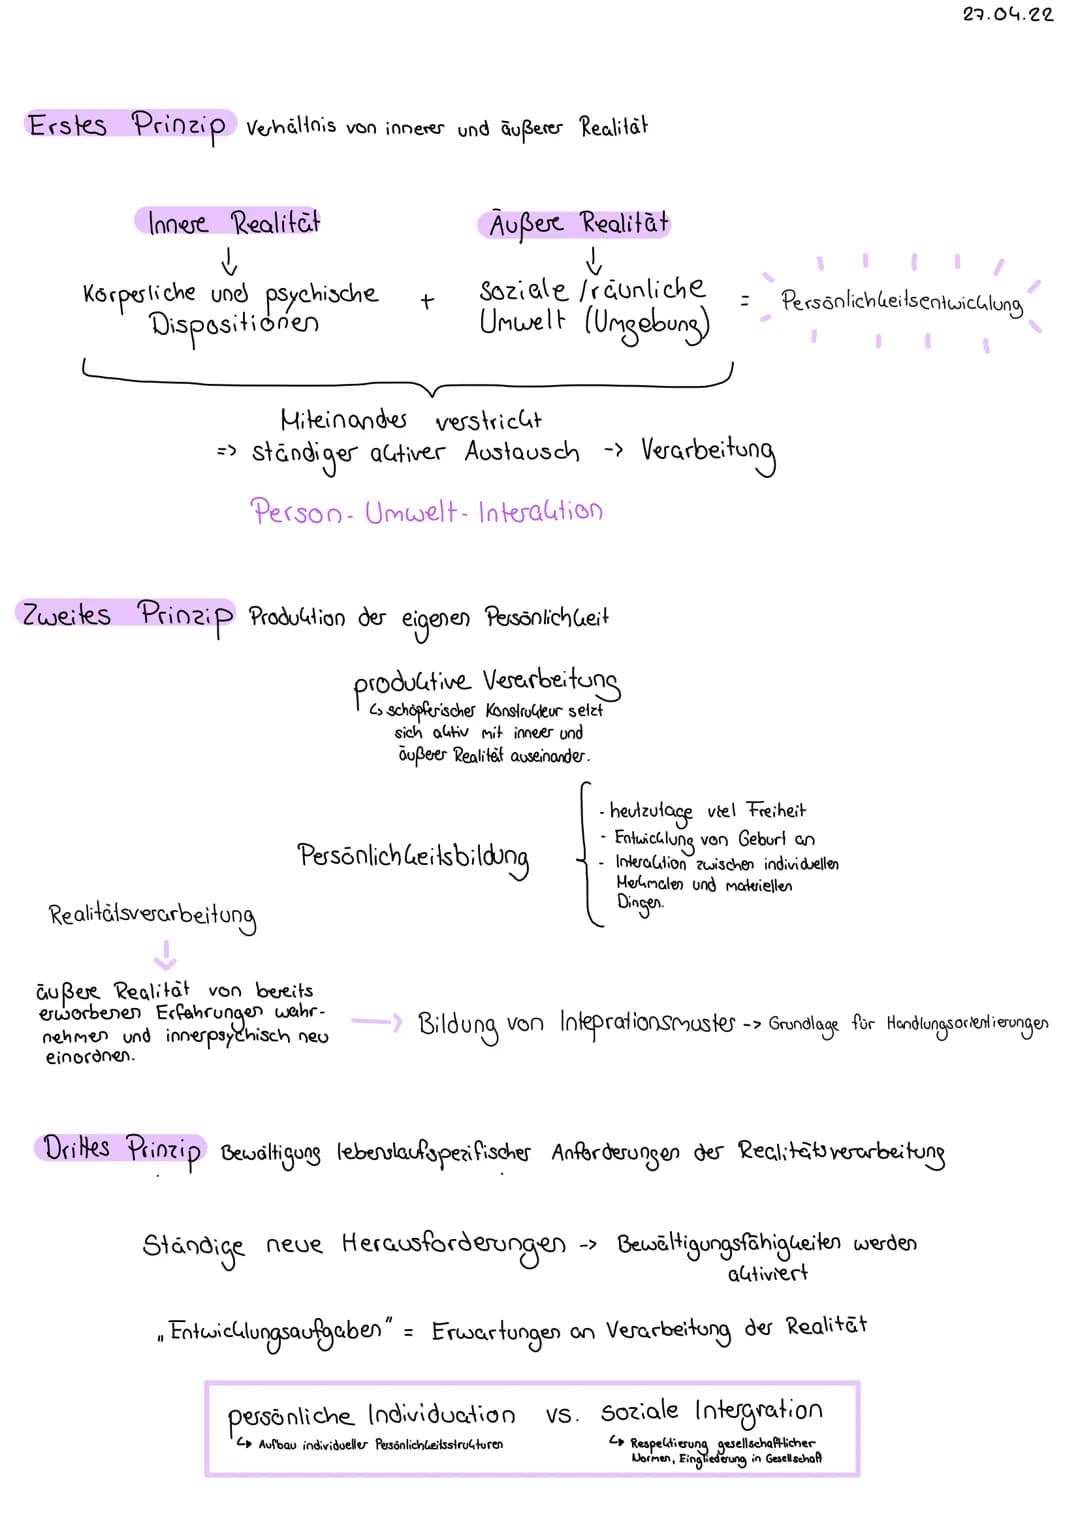 27.04.22
Erstes Prinzip Verhältnis von innerer und äußerer Realität
Innere Realität
Äußere Realität
↓
↓
Körperliche und psychische
Dispositionen
+
Soziale/räunliche
Umwelt (Umgebung)
= Persönlichkeitsentwicklung
Miteinander verstrickt
=> ständiger aktiver Austausch -> Verarbeitung
Person-Umwelt-Interaktion
Zweites Prinzip Produktion der eigenen Persönlichkeit
produktive Vererbeitung
↳ schöpferischer Konstrukteur setzt
sich aktiv mit innerer und
äußerer Realität auseinander.
Persönlichkeitsbildung
- heutzutage viel Freiheit
- Entwicklung von Geburt an
- Interaktion zwischen individuellen
Merkmalen und materiellen
Dingen.
Realitätsverarbeitung
↓
äußere Realität von bereits
erworbenen Erfahrungen wahr-
nehmen und innerpsychisch neu
einordnen.
→ Bildung von Inteprationsmuster -> Grundlage für Handlungsorientierungen
Drittes Prinzip Bewältigung lebenslaufspezifischer Anforderungen der Realitätsverarbeitung
Ständige neue Herausforderungen -> Bewältigungsfähigkeiten werden
aktiviert
„Entwicklungsaufgaben" = Erwartungen an Verarbeitung der Realität
persönliche Individuation vs. soziale Intergration
↳ Aufbau individueller Persönlichkeitsstrukturen
↳ Respektierung gesellschaftlicher
Normen, Eingliederung in Gesellschaft